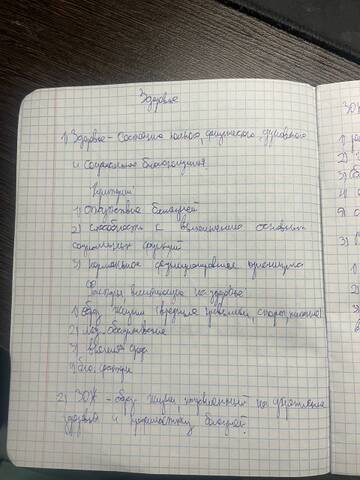 Здоровье
1) Здоровье - состояние полного, физического, духовного
и социального благополучия.
Критерии:
1) Отсутствие болезней
2) Способность к выполнению основных
социальных функций
3) нормальное функционирование организма
Факторы, влияющие на здоровье
1) образ жизни (вредные привычки, спорт, питание)
2) мед. обслуживание
3) внешняя среда
4) био. факторы
2) ЗОЖ - образ жизни, направленный на укрепление
здоровья и профилактику болезней.
ЗО
1)
2)
3)